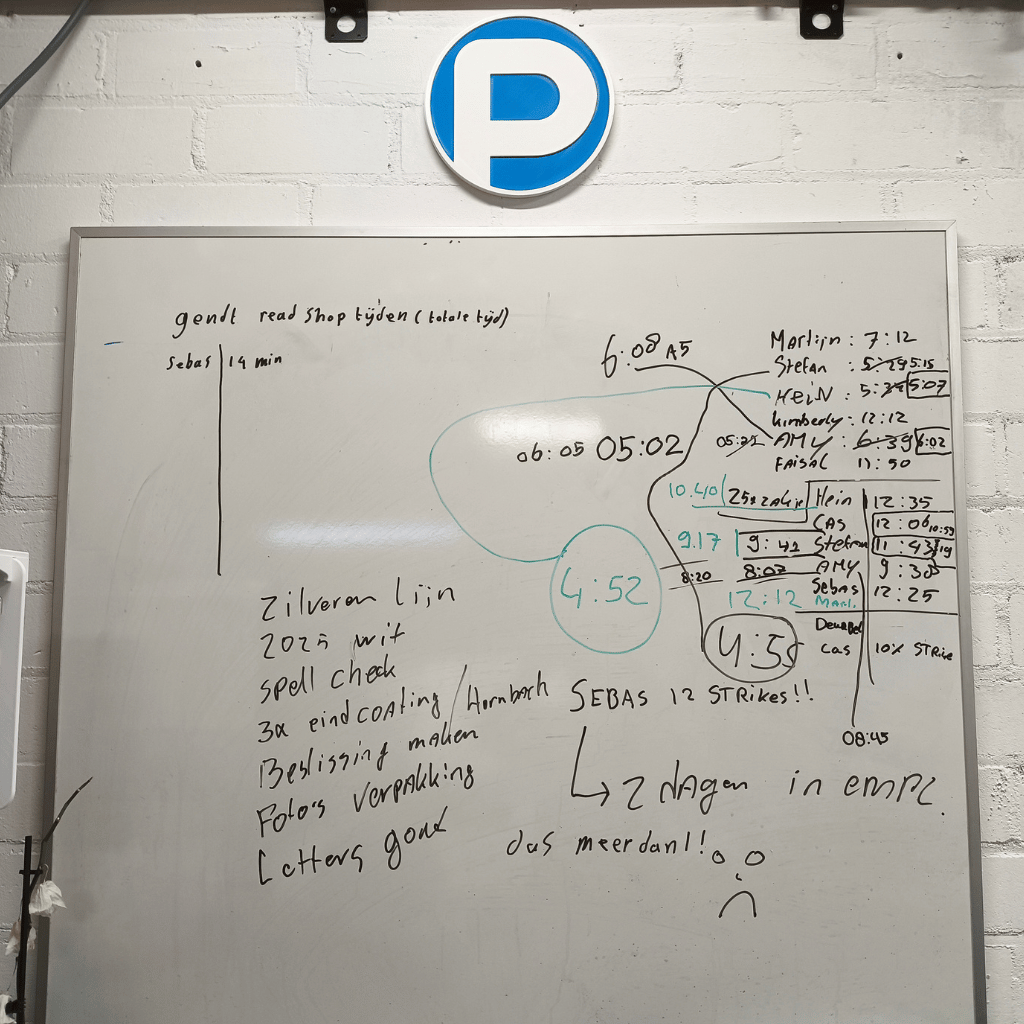 P
gendt read shop tijden (totale tijd)
Sebas 14 min
6:08 A5
Martijn : 7:12
Stefan : 5:29 5:15
HEiN : 5:39 5:07
kimberly : 12:12
06:05 05:02
05:21 AMY : 6:39 6:02
FAiSAL 11:50
10.40 25x zakje Hein 12:35
CAS 12:06 10:59
9.17 9:42 Stefan 11:43
8:20 8:07 AMY 9:30
4:52
Sebas 12:25
12:12 Mart.
4:55
cas 10% STRike
08:45
zilveren lijn
2025 wit
spell check
3x eindcoating / Hornbach
Beslissing maken
Foto's verpakking
Letters goud
SEBAS 12 STRikes!!
2 dagen in EMPL
das meerdan1!